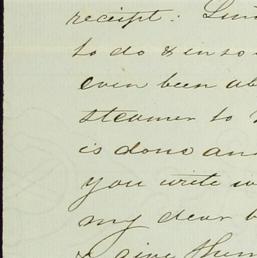 receipt. 
to do & in so
even been ab
steamer to
is done an
you write w
my dear b
& give them